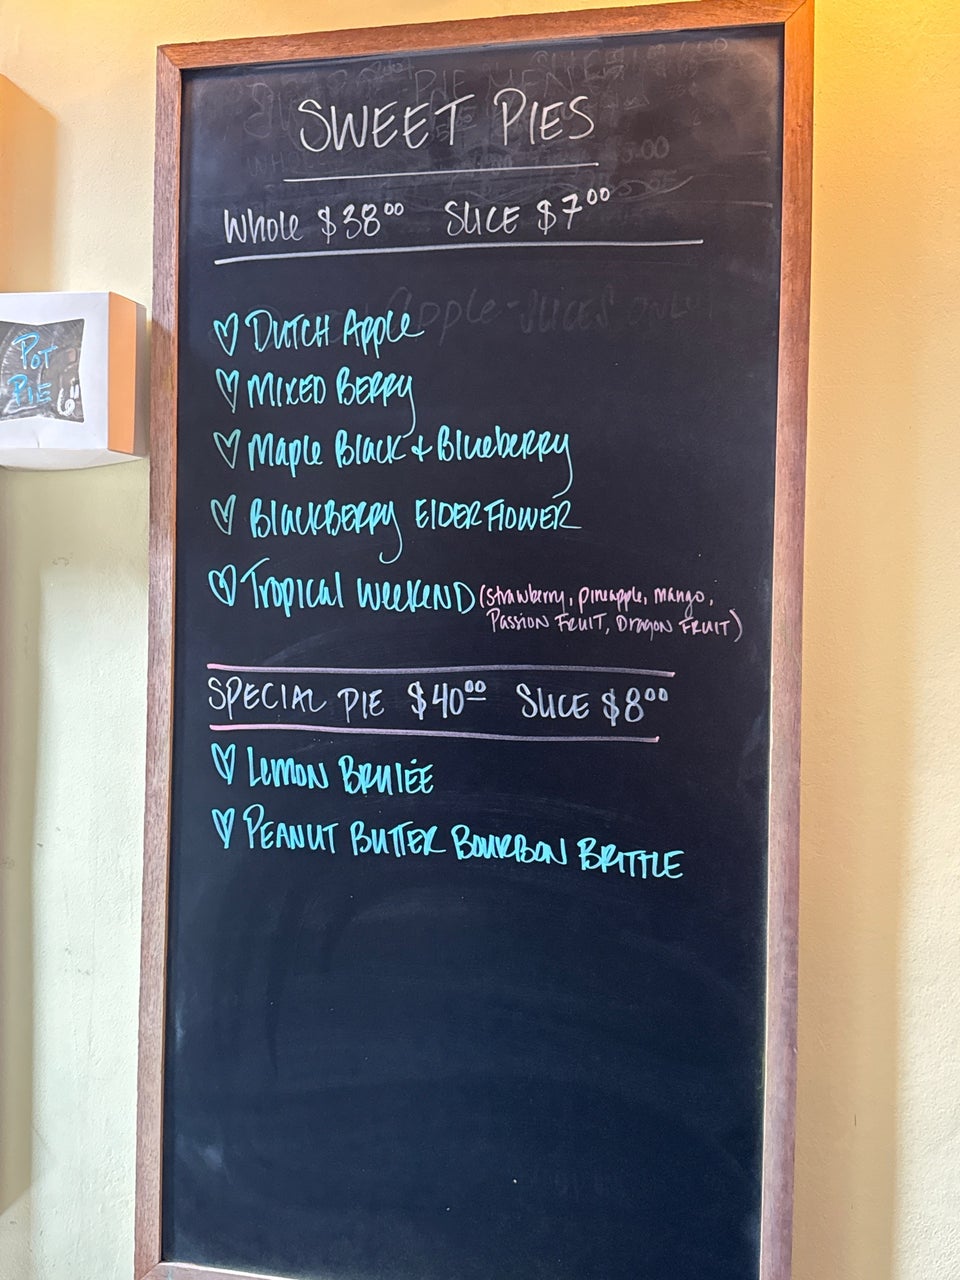 SWEET PIES
Whole $38⁰⁰ SLICE $7⁰⁰
DUTCH Apple
MIXED BERRY
Maple Black + Blueberry
BlackBERRy ElDERFlOWER
Tropical WeekEND (strawberry, pineapple, mango,
Passion FRUIT, Dragon FRUIT)
SPECIAL PIE $40⁰⁰ SLICE $8⁰⁰
Lemon BRulEÉ
PEANUT BUTTER BOURBON BRITTLE
POT
PIE 6"